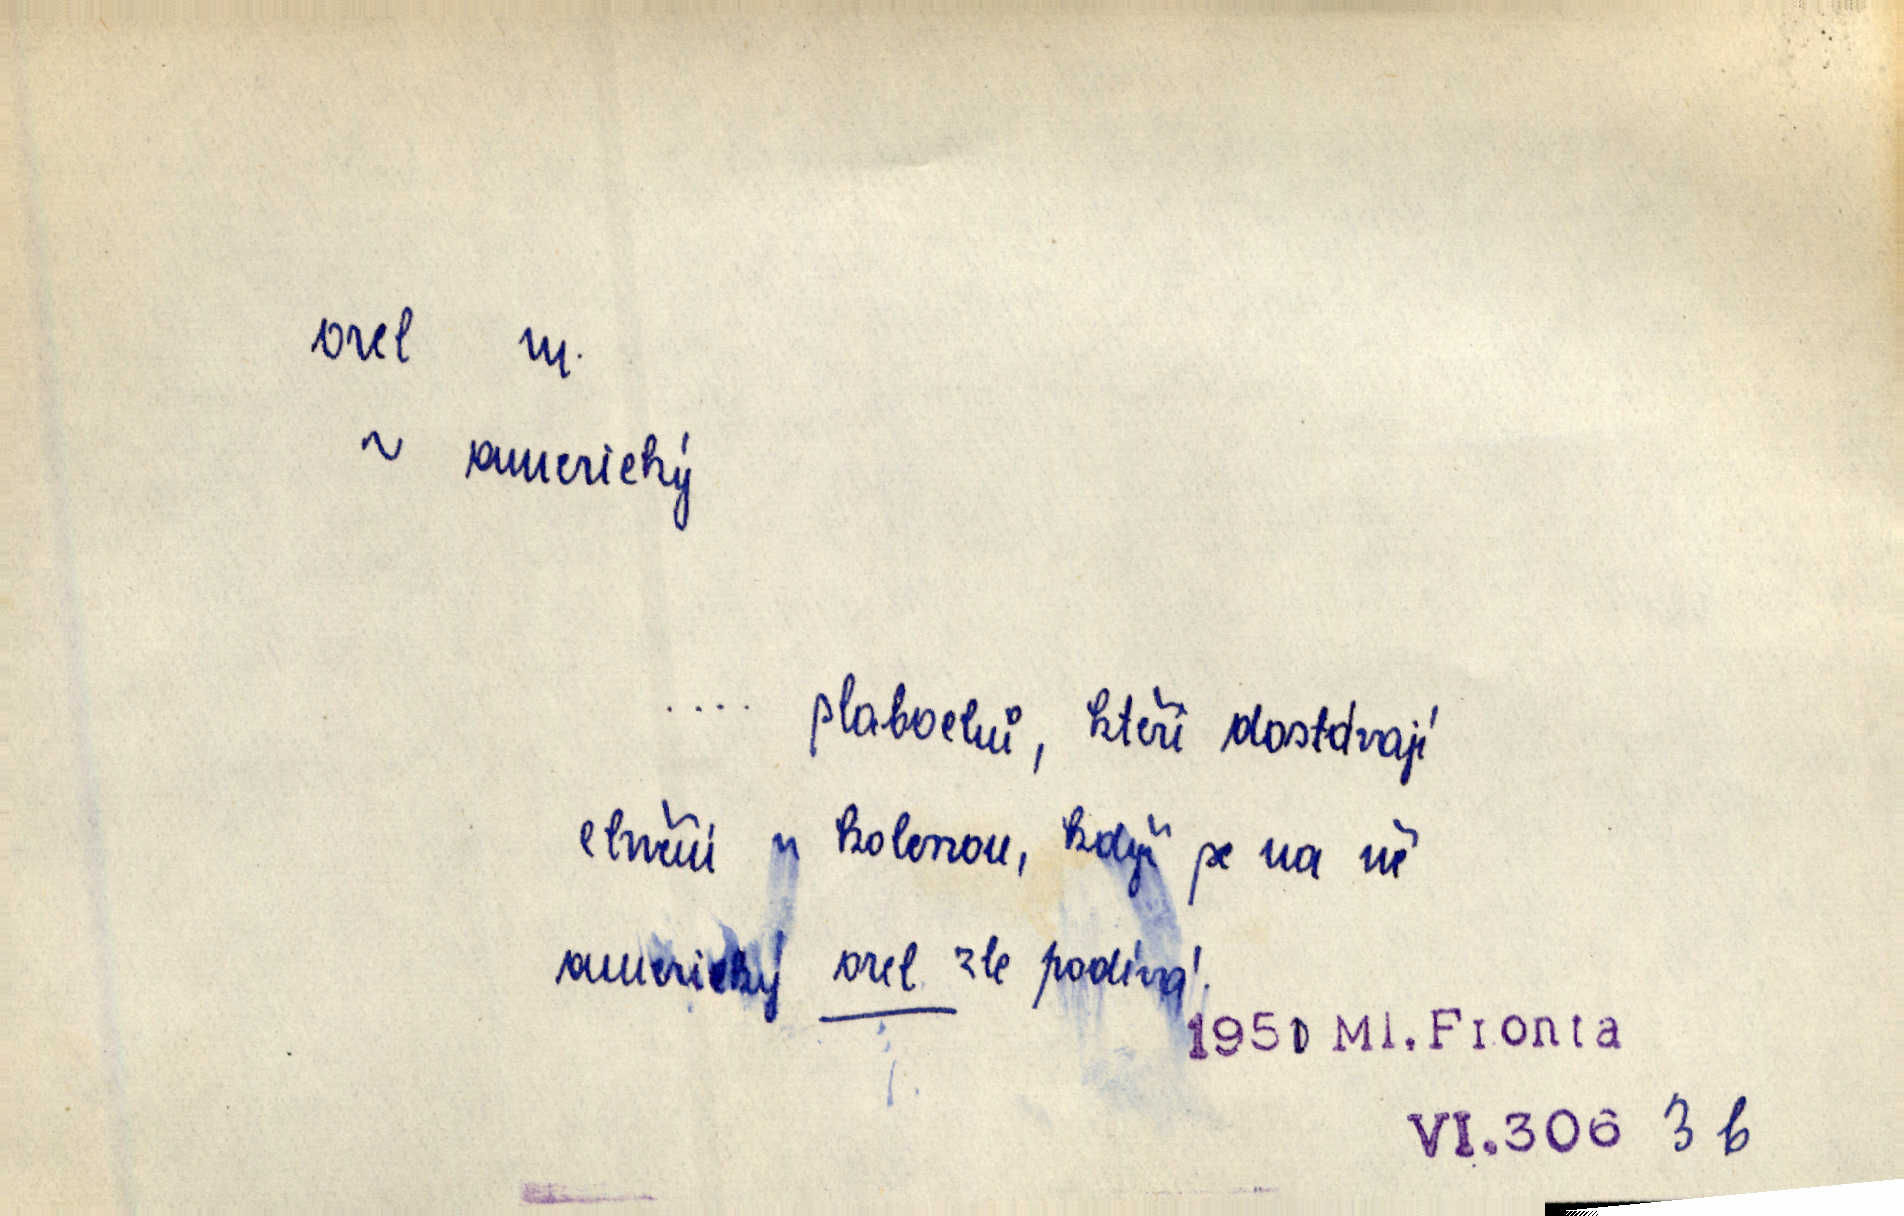 orel m.
~ americký
.... slabochů, kteří dostávají
chvění v kolenou, když se na ně
americký orel zle podívá.
1950 Ml.Fronta
VI.306 3 b